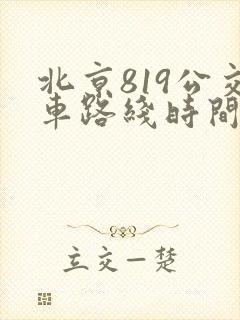 北京819公交
車路綫時間
立交一楚